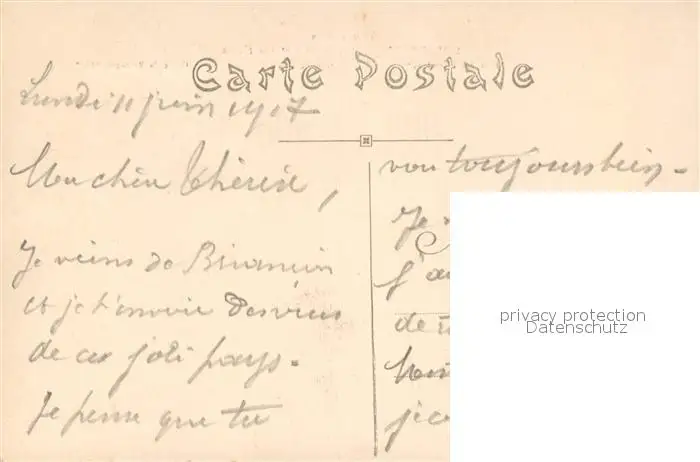 Carte Postale
Lundi 11 juin 1917
Mon chère Thérèse,
Je viens de
et je t'envoie des vues
de ce joli pays.
Je pense que tu
van toujours bien.
Je
j'
de
privacy protection
Datenschutz